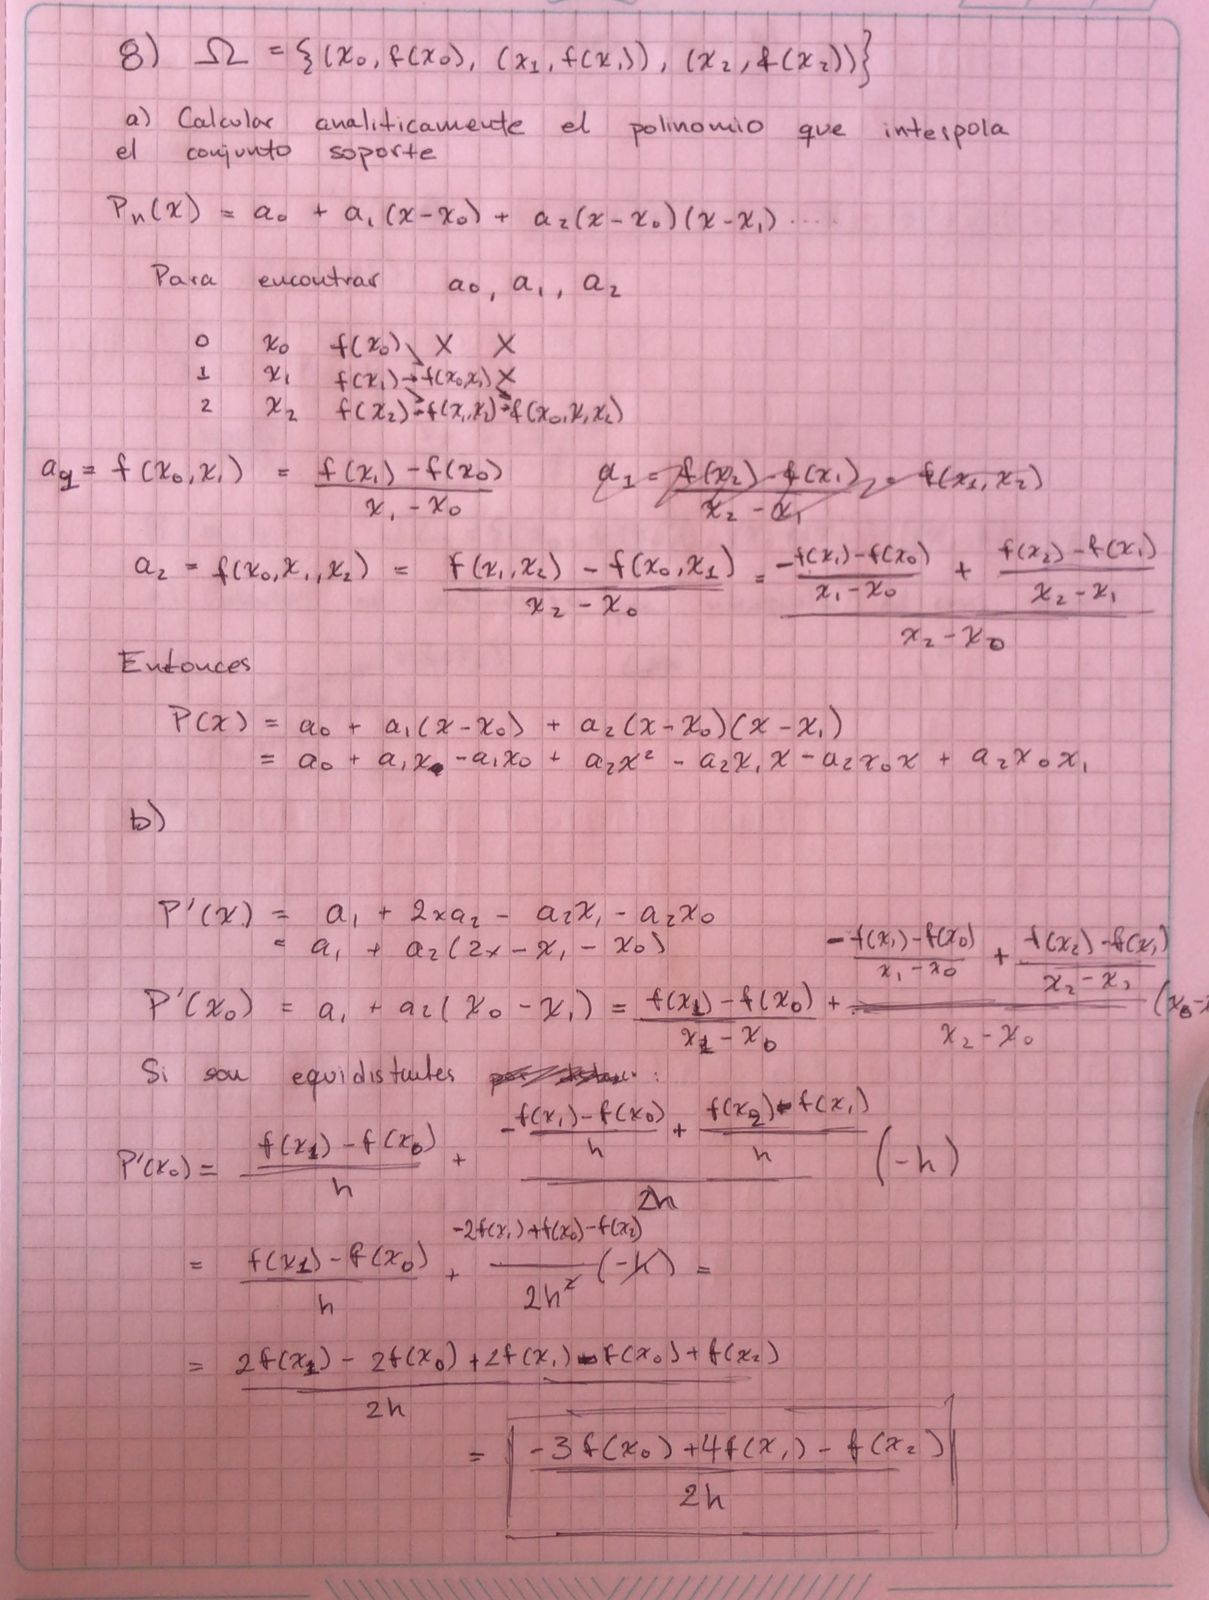 8) Ω = {(x₀, f(x₀), (x₁, f(x₁)), (x₂, f(x₂))}
a) Calcular analiticamente el polinomio que interpola
el conjunto soporte
Pₙ(x) = a₀ + a₁(x-x₀) + a₂(x-x₀)(x-x₁) ....
Para encontrar a₀, a₁, a₂
0 x₀ f(x₀) X X
1 x₁ f(x₁)→f(x₀,x₁) X
2 x₂ f(x₂)→f(x₁,x₂)→f(x₀,x₁,x₂)
a₁ = f(x₀,x₁) = (f(x₁) - f(x₀))/(x₁ - x₀) a₁ = (f(x₂) - f(x₁))/(x₂ - x₁) = f(x₁,x₂)
a₂ = f(x₀,x₁,x₂) = (f(x₁,x₂) - f(x₀,x₁))/(x₂ - x₀) = (-(f(x₁)-f(x₀))/(x₁-x₀) + (f(x₂)-f(x₁))/(x₂-x₁))/(x₂-x₀)
Entonces
P(x) = a₀ + a₁(x-x₀) + a₂(x-x₀)(x-x₁)
= a₀ + a₁x - a₁x₀ + a₂x² - a₂x₁x - a₂x₀x + a₂x₀x₁
b)
P'(x) = a₁ + 2xa₂ - a₂x₁ - a₂x₀
= a₁ + a₂(2x - x₁ - x₀)
P'(x₀) = a₁ + a₂(x₀ - x₁) = (f(x₁) - f(x₀))/(x₁ - x₀) + (-(f(x₁)-f(x₀))/(x₁-x₀) + (f(x₂)-f(x₁))/(x₂-x₁))/(x₂-x₀) (x₀-x
Si son equidistantes :
P'(x₀) = (f(x₁) - f(x₀))/h + (-(f(x₁)-f(x₀))/h + (f(x₂)-f(x₁))/h)/2h (-h)
= (f(x₁) - f(x₀))/h + (-2f(x₁)+f(x₀)-f(x₂))/2h² (-h) =
= (2f(x₁) - 2f(x₀) + 2f(x₁) - f(x₀) + f(x₂))/2h
= (-3f(x₀) + 4f(x₁) - f(x₂))/2h